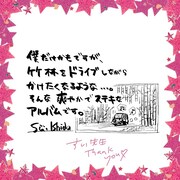 僕だけかもですが、
竹林をドライブしながら
かけたくなるような…。
そんな爽やかでステキな
アルバムです。
Thank you♡